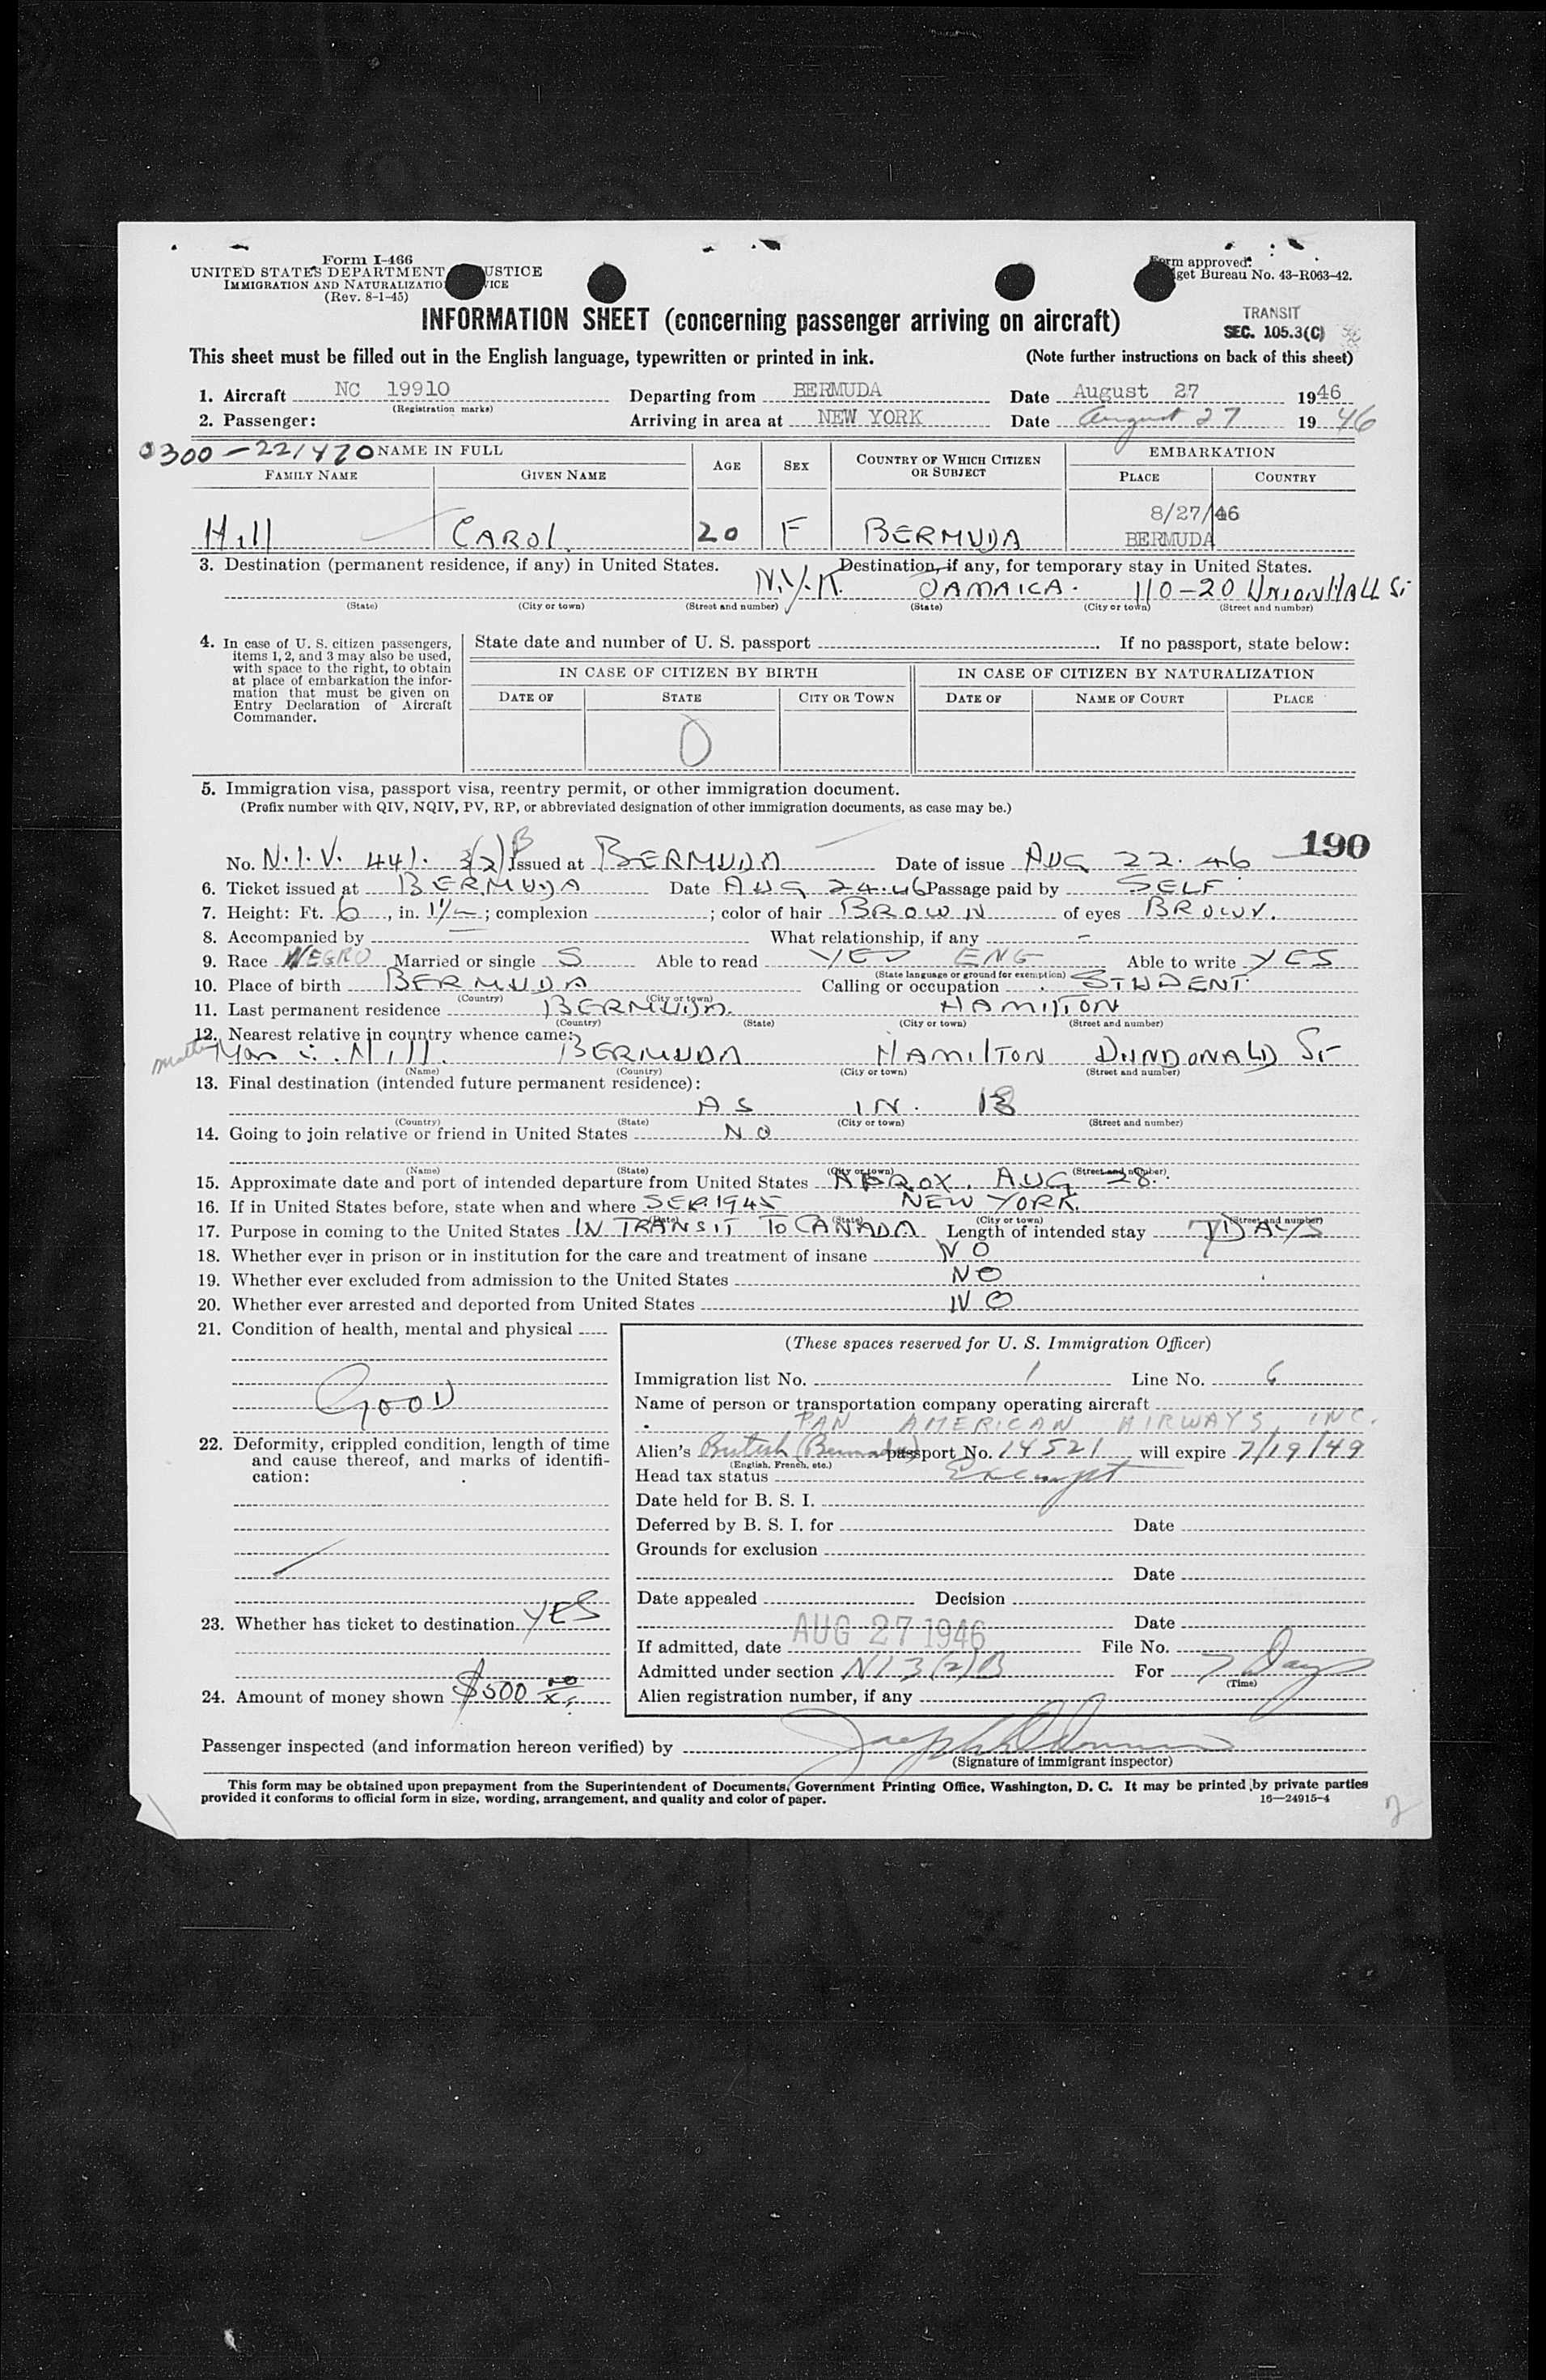 Form I-466
UNITED STATES DEPARTMENT JUSTICE
IMMIGRATION AND NATURALIZATION VICE
(Rev. 8-1-45)
Form approved.
get Bureau No. 43-R063-42.
INFORMATION SHEET (concerning passenger arriving on aircraft)
TRANSIT
SEC. 105.3(C)
This sheet must be filled out in the English language, typewritten or printed in ink. (Note further instructions on back of this sheet)
1. Aircraft NC 19910 Departing from BERMUDA Date August 27 1946
(Registration marks)
2. Passenger: Arriving in area at NEW YORK Date August 27 1946
0300-221470 NAME IN FULL AGE SEX COUNTRY OF WHICH CITIZEN OR SUBJECT EMBARKATION
FAMILY NAME GIVEN NAME PLACE COUNTRY
8/27/46
Hill CAROL 20 F BERMUDA BERMUDA
3. Destination (permanent residence, if any) in United States. Destination, if any, for temporary stay in United States.
N.Y.K. JAMAICA. 110-20 UNION HALL St
(State) (City or town) (Street and number) (State) (City or town) (Street and number)
4. In case of U. S. citizen passengers, items 1, 2, and 3 may also be used, with space to the right, to obtain at place of embarkation the information that must be given on Entry Declaration of Aircraft Commander.
State date and number of U. S. passport If no passport, state below:
IN CASE OF CITIZEN BY BIRTH IN CASE OF CITIZEN BY NATURALIZATION
DATE OF STATE CITY OR TOWN DATE OF NAME OF COURT PLACE
0
5. Immigration visa, passport visa, reentry permit, or other immigration document.
(Prefix number with QIV, NQIV, PV, RP, or abbreviated designation of other immigration documents, as case may be.)
190
No. N.I.V. 441. 3(2)B Issued at BERMUDA Date of issue AUG 22. 46
6. Ticket issued at BERMUDA Date AUG 24.46 Passage paid by SELF
7. Height: Ft. 6, in. 1½; complexion ; color of hair BROWN of eyes BROWN.
8. Accompanied by — What relationship, if any -
9. Race NEGRO Married or single S Able to read YES ENG Able to write YES
(State language or ground for exemption)
10. Place of birth BERMUDA Calling or occupation STUDENT
(Country) (City or town)
11. Last permanent residence BERMUDA. HAMILTON
(Country) (State) (City or town) (Street and number)
12. Nearest relative in country whence came:
mother Hill. BERMUDA HAMILTON DUNDONALD St
(Name) (Country) (City or town) (Street and number)
13. Final destination (intended future permanent residence):
AS IN.
(Country) (State) (City or town) (Street and number)
14. Going to join relative or friend in United States NO
(Name) (State) (City or town) (Street and number)
15. Approximate date and port of intended departure from United States APROX. AUG 28.
16. If in United States before, state when and where SEP. 1945 NEW YORK.
(Date) (State) (City or town) (Street and number)
17. Purpose in coming to the United States IN TRANSIT TO CANADA Length of intended stay 7 DAYS
18. Whether ever in prison or in institution for the care and treatment of insane NO
19. Whether ever excluded from admission to the United States NO
20. Whether ever arrested and deported from United States NO
21. Condition of health, mental and physical
GOOD
22. Deformity, crippled condition, length of time and cause thereof, and marks of identification:
23. Whether has ticket to destination YES
24. Amount of money shown $500
(These spaces reserved for U. S. Immigration Officer)
Immigration list No. 1 Line No. 6
Name of person or transportation company operating aircraft
PAN AMERICAN AIRWAYS, INC.
Alien's British (Bermuda) passport No. 14521 will expire 7/19/49
(English, French, etc.)
Head tax status Exempt
Date held for B. S. I.
Deferred by B. S. I. for Date
Grounds for exclusion
Date
Date appealed Decision
Date
If admitted, date AUG 27 1946 File No.
Admitted under section NI 3(2)B For 7 Days
(Time)
Alien registration number, if any
Passenger inspected (and information hereon verified) by
(Signature of immigrant inspector)
This form may be obtained upon prepayment from the Superintendent of Documents, Government Printing Office, Washington, D. C. It may be printed by private parties
provided it conforms to official form in size, wording, arrangement, and quality and color of paper. 16—24915-4
2